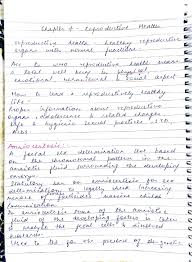 Chapter 4 - Reproductive Health
reproductive health healthy reproductive
organs with normal function
Acc to WHO reproductive health means
a total well being in physical,
emotional, behavioural & social aspect
How to lead a reproductively healthy
life?
proper information about reproductive
organ, adolescence & related changes,
safe & hygienic sexual practice, STD,
AIDS
Amniocentesis:
A foetal sex determination test based
on the chromosomal pattern in the
amniotic fluid surrounding the developing
embryo.
Statutory ban on amniocentesis for sex
determination to legally check increasing
female foeticides
In amniocentesis some of the amniotic
fluid of the developing foetus is taken
to analyse the fetal cells & dissolved
substances
Used to test for the presence of genetic